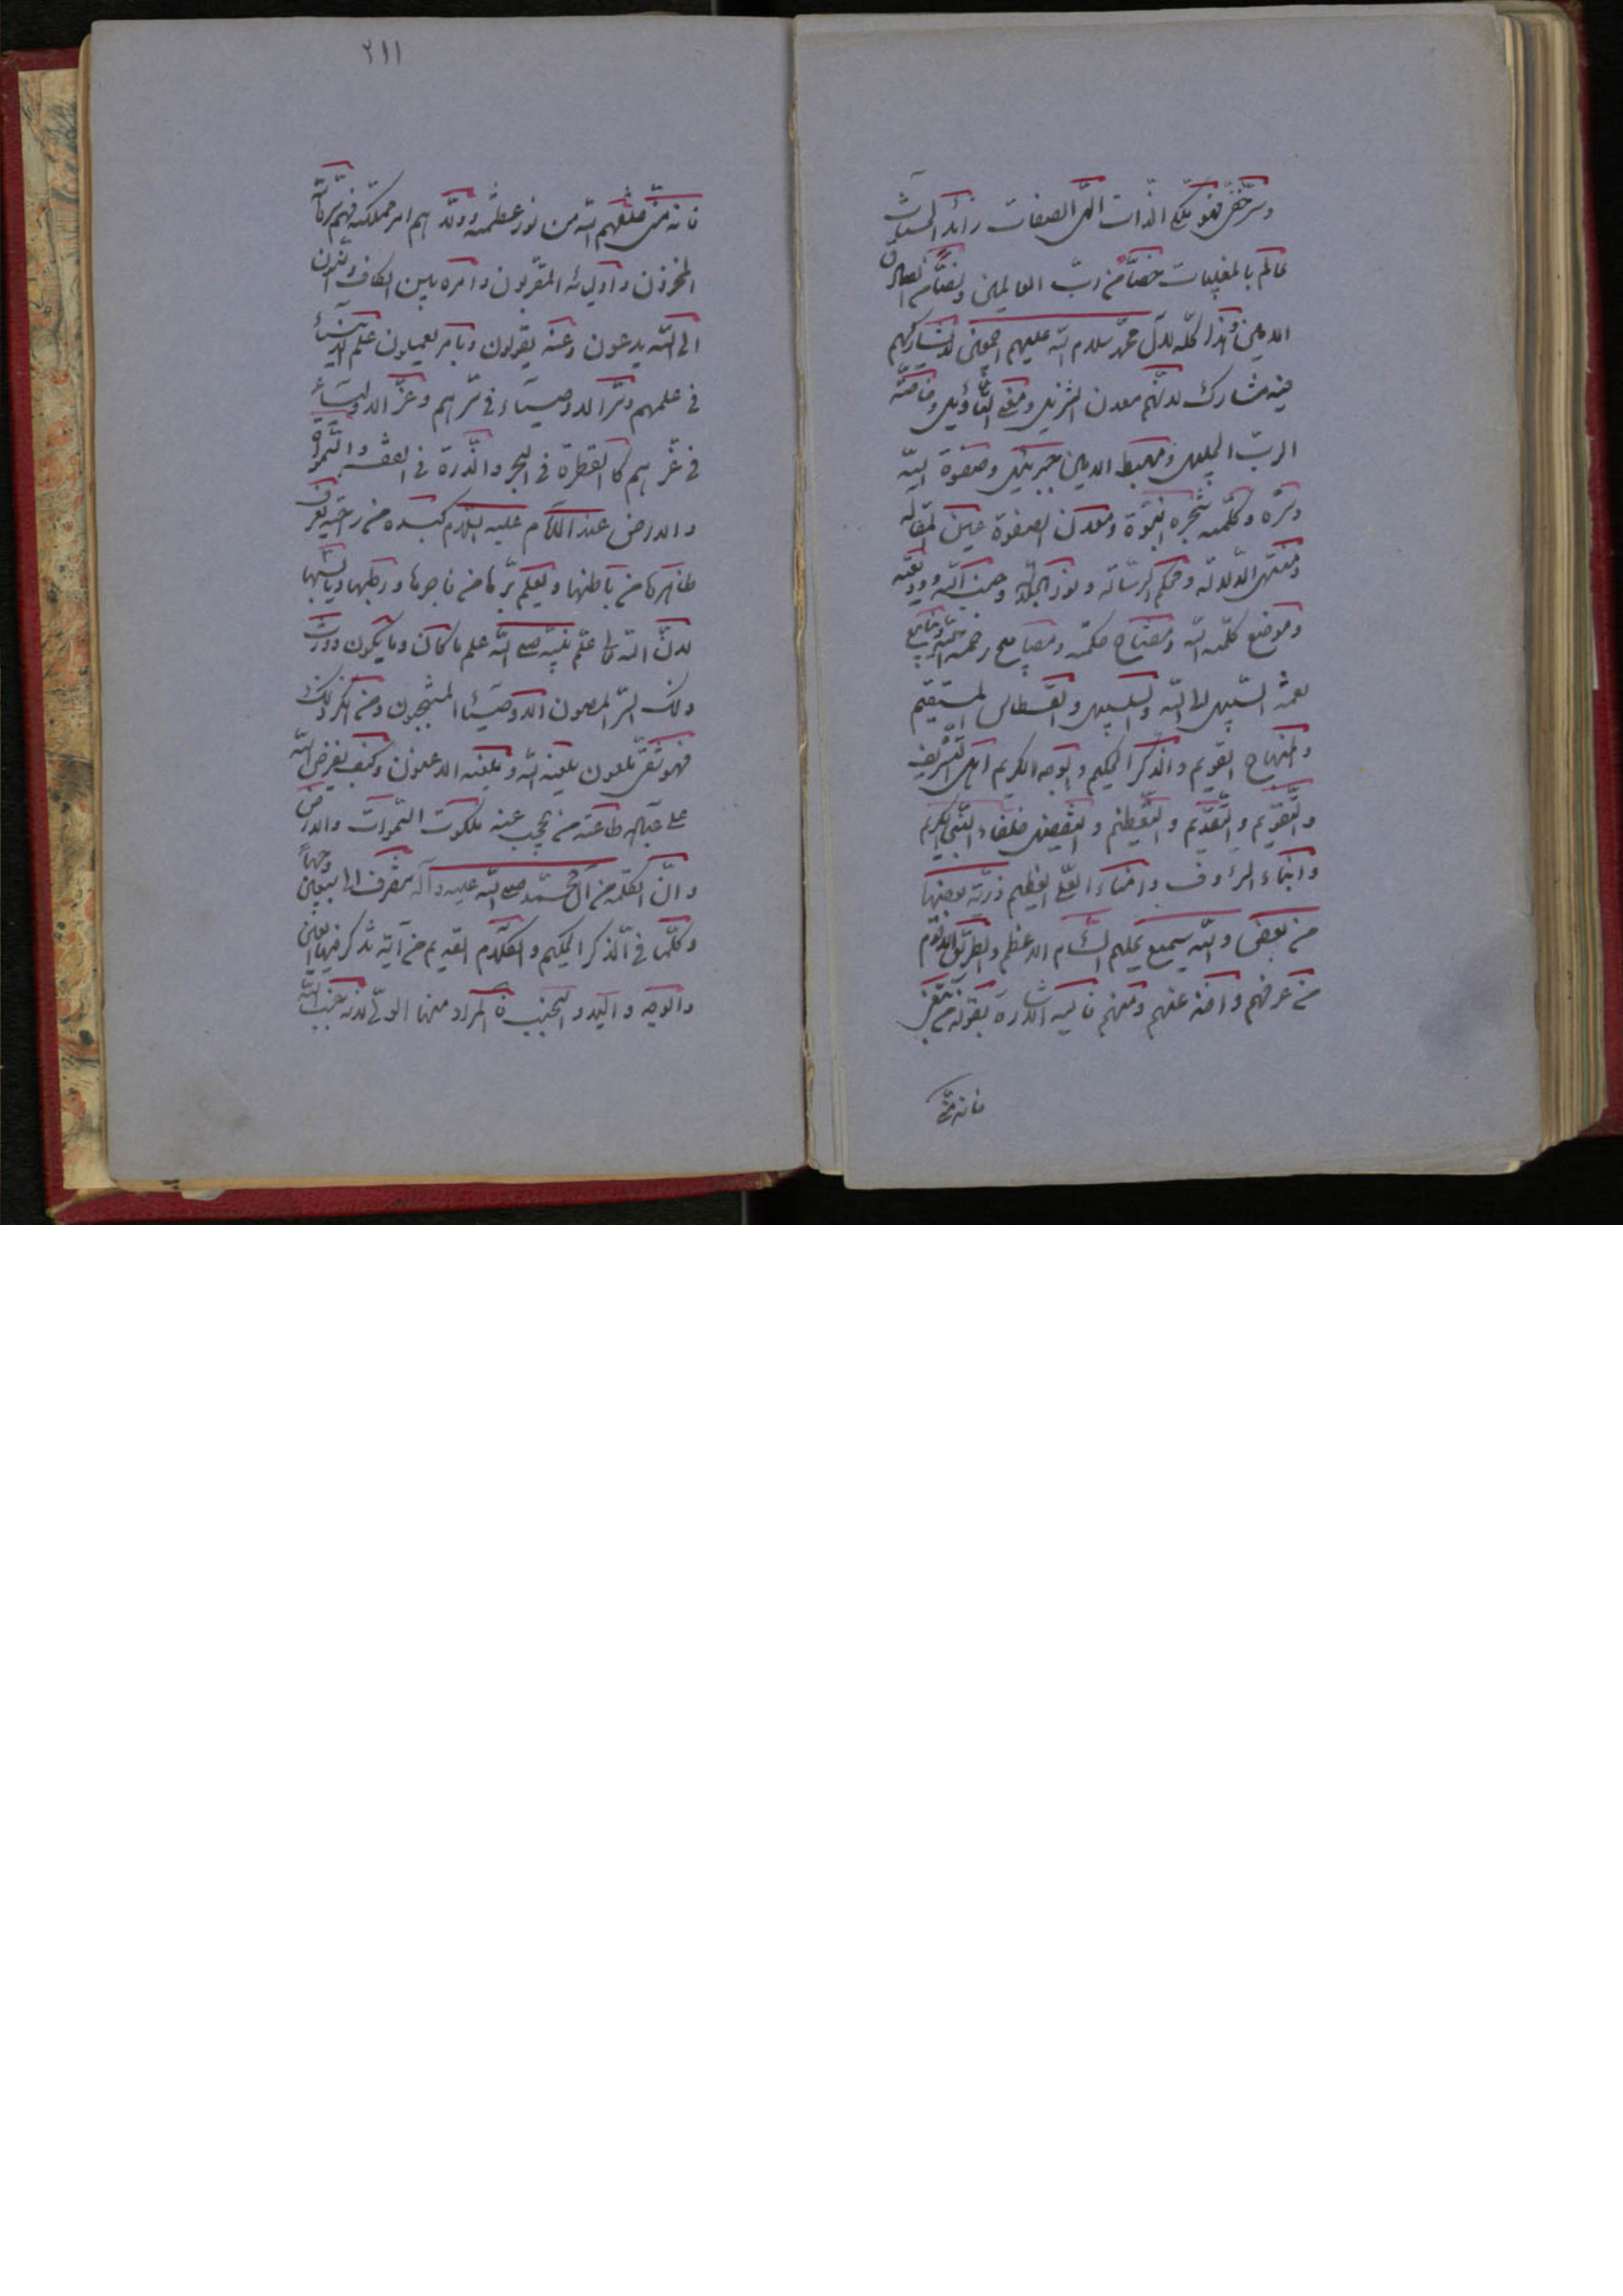 وسر خفي فهو ملكي الذات الهي الصفات زائد الحسنات
عالم بالمغيبات خصا من رب العالمين ونصا من الصادق
الامين وهذا كله لال محمد سلام الله عليهم اجمعين لا يشاركهم
فيه مشارك لانهم معدن التنزيل ومعنى التأويل وخاصة
الرب الجليل ومهبط الامين جبرئيل وصفوة الله
وسره وكلمته شجرة النبوة ومعدن الصفوة عين المقالة
ومنتهى الدلالة ومحكم الرسالة ونور الجلالة وجنب الله ووديعته
وموضع كلمة الله ومفتاح حكمته ومصابيح رحمة الله وينابيع
نعمته السبيل الى الله والسلسبيل والقسطاس المستقيم
والمنهاج القويم والذكر الحكيم والوجه الكريم اهل التشريف
والتقويم والتقديم والتعظيم والتفضيل خلفاء النبي الكريم
وابناء الرؤوف وامناء العلي العظيم ذرية بعضها
من بعض والله سميع عليم السنام الاعظم والطريق الاقوم
من عرفهم واخذ عنهم فهو منهم واليه الاشارة بقوله من تبعني
فانه مني
٢١١
فانه مني خلقهم الله من نور عظمته وولاهم امر مملكته فهم سر الله
المخزون واوليائه المقربون وامره بين الكاف والنون
الى الله يدعون وعنه يقولون وبامره يعملون علم الانبياء
في علمهم وسر الاوصياء في سرهم وعز الاولياء
في عزهم كالقطرة في البحر والذرة في القفر والسموات
والارض عند الامام عليه السلام كيده من راحته يعرف
ظاهرها من باطنها ويعلم برها من فاجرها ورطبها ويابسها
لان الله تعالى علم نبيه صلى الله علم ما كان وما يكون وورث
ذلك السر المصون الاوصياء المنتجبون ومن انكر ذلك
فهو شقي ملعون يلعنه الله ويلعنه اللاعنون وكيف يفرض الله
على عباده طاعة من يحجب عنه ملكوت السموات والارض
وان الكلمة من آل محمد صلى الله عليه وآله تنصرف الى سبعين وجها
وكلما في الذكر الحكيم والكلام القديم من آية تذكر فيها العين
والوجه واليد والجنب فالمراد منها الولي لانه جنب الله